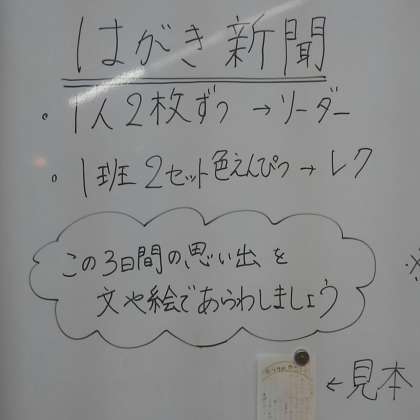 はがき新聞
・1人2枚ずつ→リーダー
・1班2セット色えんぴつ→レク
この3日間の思い出を
文や絵であらわしましょう
※
←見本